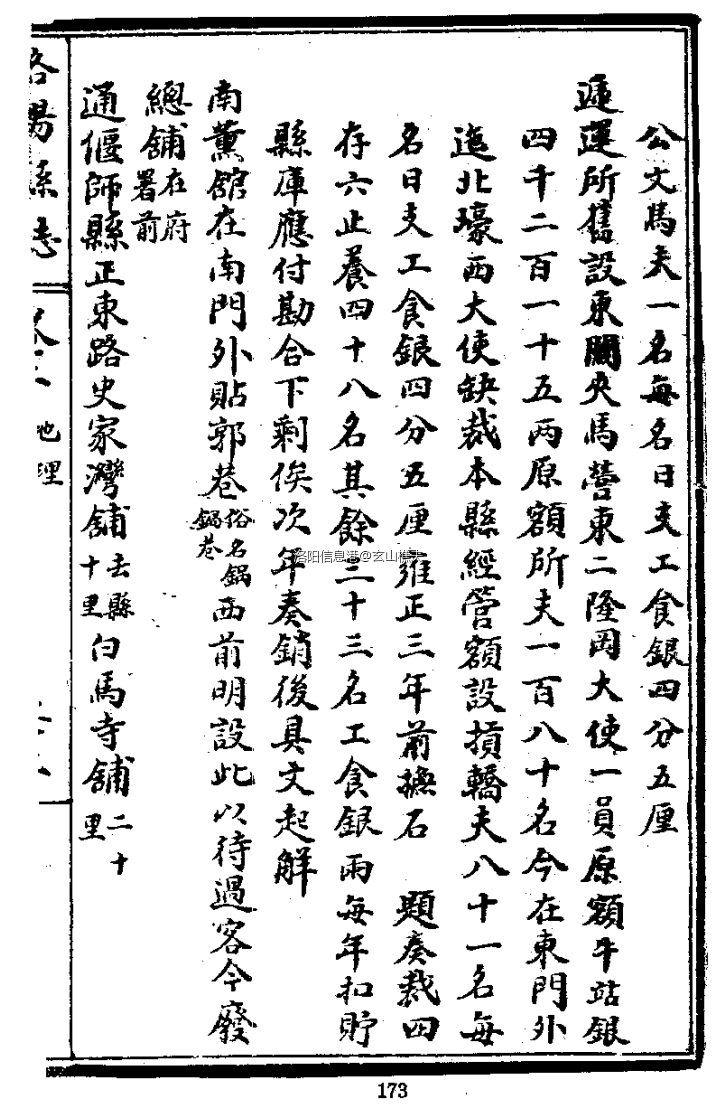 公文馬夫一名每名日支工食銀四分五厘
遞運所舊設東關夾馬營東二隆岡大使一員原額牛站銀
四千二百一十五兩原額所夫一百八十名今在東門外
迤北壕西大使缺裁本縣經管額設損轎夫八十一名每
名日支工食銀四分五厘雍正三年前撫石 題奏裁四
存六止養四十八名其餘三十三名工食銀兩每年扣貯
縣庫應付勘合下剩俟次年奏銷後具文起解
南薰舘在南門外貼郭巷俗名鍋鍋巷西前明設此以待過客今廢
總舖在府署前
通偃師縣正東路史家灣舖去縣十里白馬寺舖二十里
洛陽縣志
地理
洛阳信息港@玄山樵夫
173